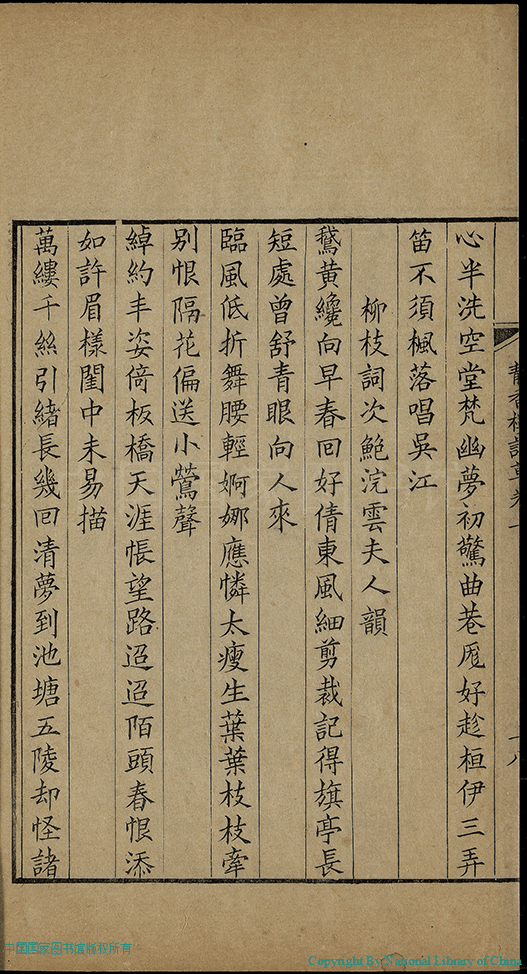 心半洗空堂梵幽夢初驚曲巷厖好趁桓伊三弄
笛不須楓落唱吳江
柳枝詞次鮑浣雲夫人韻
鵞黃纔向早春回好倩東風細剪裁記得旗亭長
短處曾舒青眼向人來
臨風低折舞腰輕婀娜應憐太瘦生葉葉枝枝牽
別恨隔花偏送小鶯聲
綽約丰姿倚板橋天涯悵望路迢迢陌頭春恨添
如許眉樣閨中未易描
萬縷千絲引緒長幾回清夢到池塘五陵却怪諸
中国国家图书馆版权所有
Copyright By National Library of China